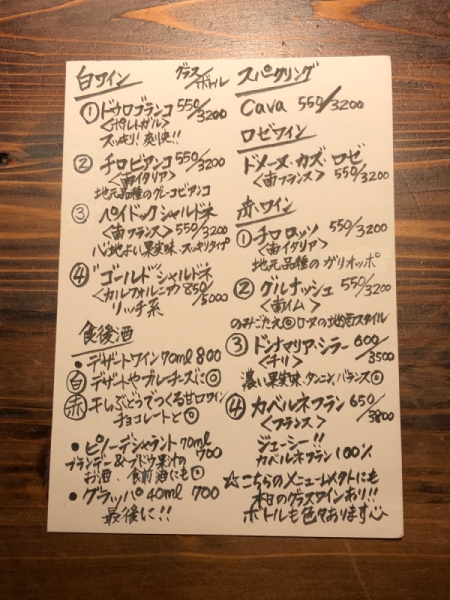 白ワイン グラス/ボトル
① ドウロブランコ 550/3200
<ポルトガル>
スッキリ!爽快!!
② チロビアンコ 550/3200
<南イタリア>
地元品種のグレーコビアンコ
③ ペイドックシャルドネ
<南フランス> 550/3200
心地よい果実味、スッキリタイプ
④ ゴールドシャルドネ
<カルフォルニア> 850/5000
リッチ系
食後酒
・デザートワイン 70ml 800
白 デザートやブルーチーズに◎
赤 干しぶどうでつくる甘口ワイン
チョコレートと◎
・ピノーデシャラント 70ml
700
ブランデー&ブドウ果汁の
お酒、食前酒にも◎
・グラッパ 40ml 700
最後に!!
スパークリング
Cava 550/3200
ロゼワイン
ドメーヌ・カズ ロゼ
<南フランス> 550/3200
赤ワイン
① チロロッソ 550/3200
<南イタリア>
地元品種のガリオッポ
② グルナッシュ 550/3200
<南仏>
のみごたえ◎ローヌの地酒スタイル
③ ドンナマリア・シラー 600/3500
<チリ>
濃い果実味、タンニン、バランス◎
④ カベルネフラン 650/3800
<フランス>
ジューシー!!
カベルネフラン100%
☆こちらのメニュー以外にも
本日のグラスワインあり!!
ボトルも色々あります